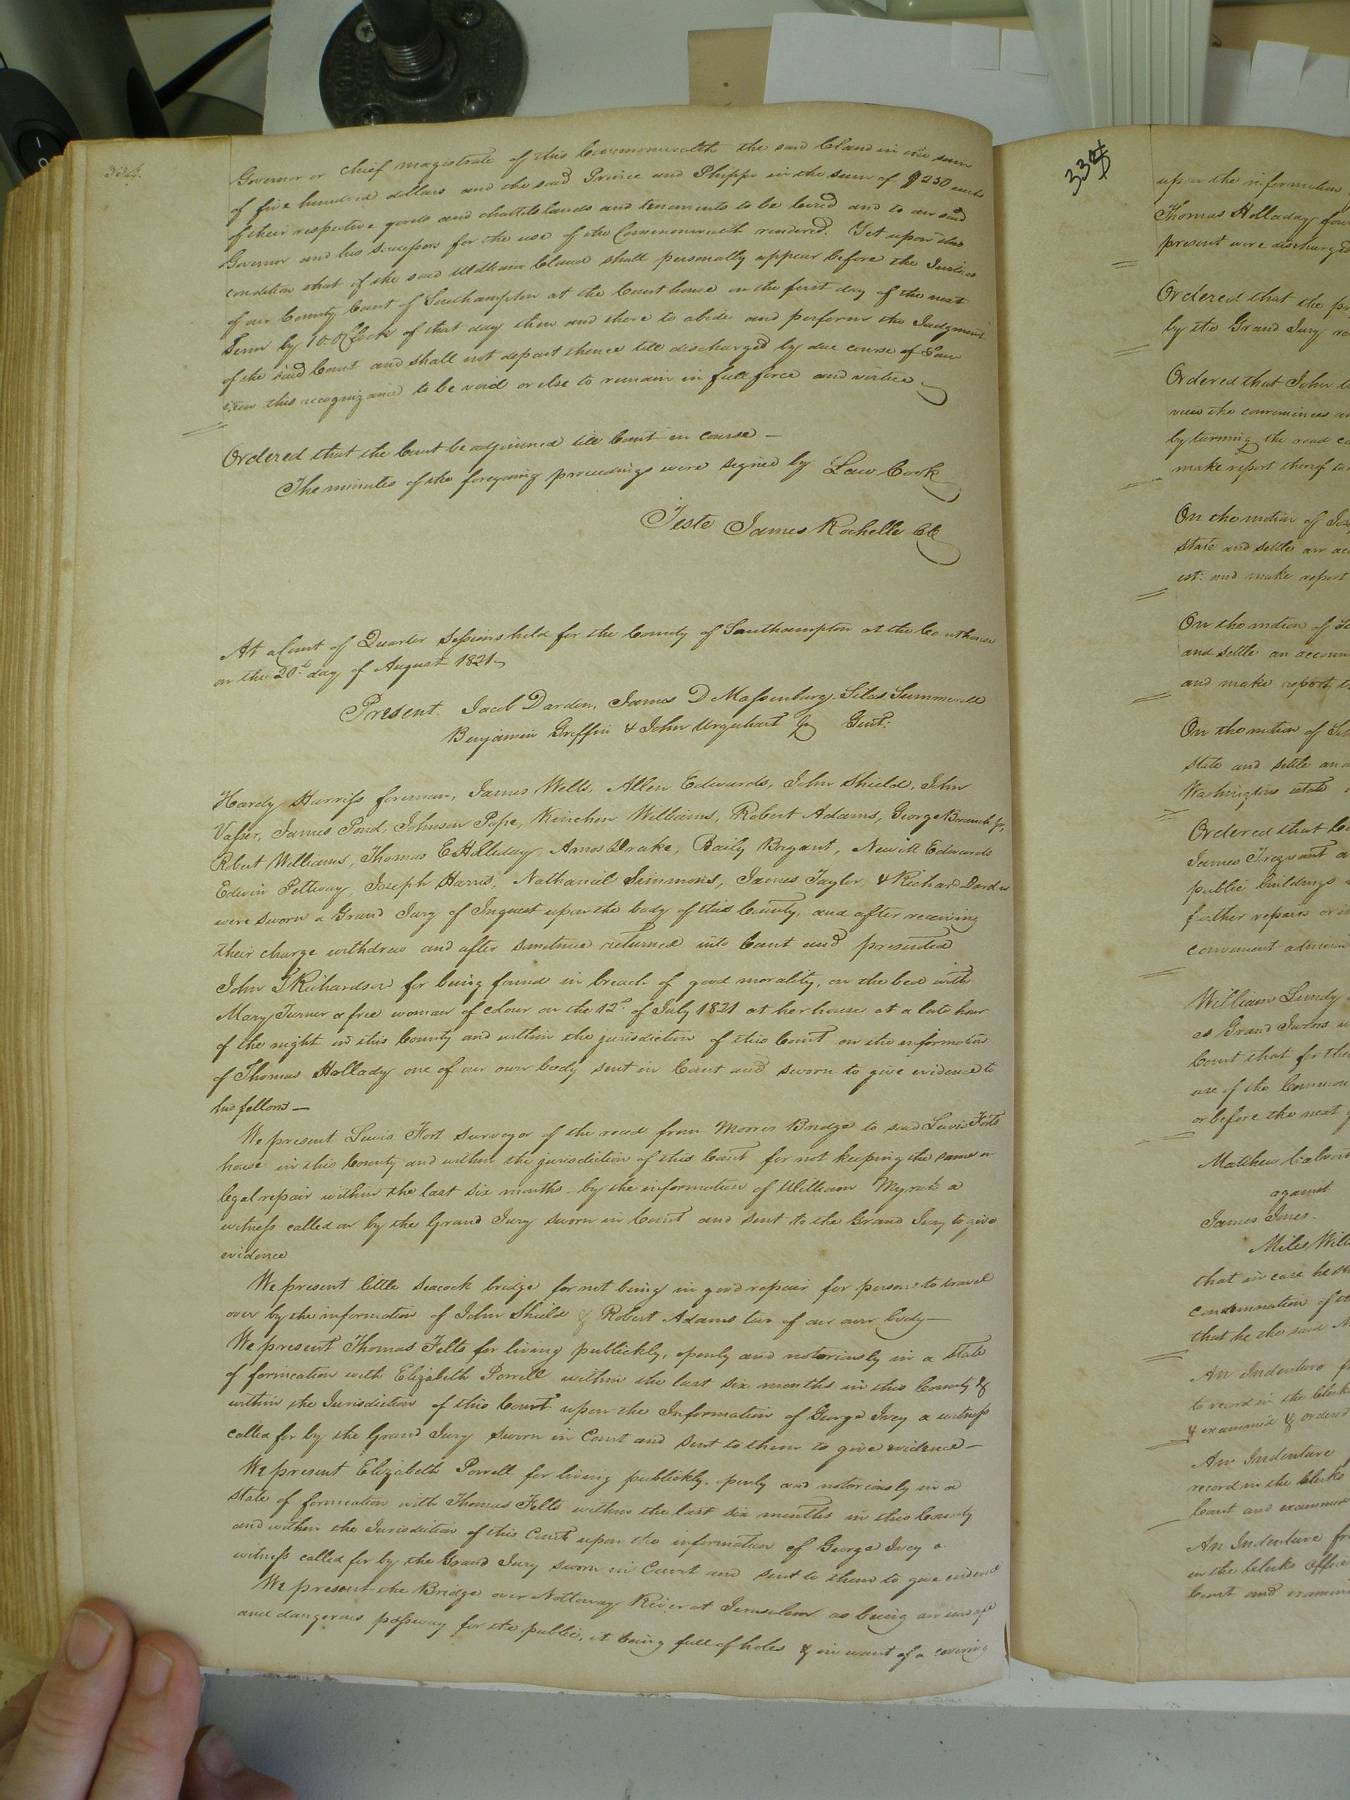 334.
Governor or chief magistrate of this Commonwealth the said Claud in the sum
of five hundred dollars and the said Prince and Phipps in the sum of $250 each
of their respective goods and chattels lands and tenements to be levied and to our said
Governor and his successors for the use of the Commonwealth rendered. Yet upon this
condition that if the said William Claud shall personally appear before the Justices
of our County Court of Southampton at the Courthouse on the first day of the next
Term by 10 OClock of that day then and there to abide and perform the Judgment
of the said Court and shall not depart thence till discharged by due course of Law
then this recognizance to be void or else to remain in full force and virtue
Ordered that the Court be adjourned till Court in course —
The minutes of the foregoing proceedings were signed by Law Cook
Teste James Rochelle Clk
At a Court of Quarter Sessions held for the County of Southampton at the Courthouse
on the 20th day of August 1821
Present. Jacob Darden, James D Massenburg, Silas Summerell
Benjamin Griffin & John Urquhart Gent:
Hardy Harriss foreman, James Wells, Allen Edwards, John Shield, John
Vasser, James Pond, Johnson Pope, Kinchen Williams, Robert Adams, George Branch Jr,
Robert Williams, Thomas E Holladay, Amos Drake, Baily Bryant, Newitt Edwards
Edwin Pettway, Joseph Harris, Nathaniel Simmons, James Taylor, & Richard Darden
were sworn a Grand Jury of Inquest upon the body of this County, and after receiving
their charge withdrew and after sometime returned into Court and presented
John T Richardson for being found in breach of good morality, on the bed with
Mary Turner a free woman of colour on the 12th of July 1821 at her house at a late hour
of the night in this County and within the jurisdiction of this Court on the information
of Thomas Hollady one of our own body sent in Court and sworn to give evidence to
his fellows —
We present Lewis Fort surveyor of the road from Morris Bridge to said Lewis Forts
house in this County and within the jurisdiction of this Court for not keeping the same in
legal repair within the last six months by the information of William Myrick a
witness called on by the Grand Jury sworn in Court and sent to the Grand Jury to give
evidence
We present little Seacock bridge for not being in good repair for persons to travel
over by the information of John Sheild & Robert Adams two of our own body —
We present Thomas Felts for living publickly, openly and notoriously in a state
of fornication with Elizabeth Powell within the last six months in this County &
within the Jurisdiction of this Court upon the Information of George Ivey a witness
called for by the Grand Jury sworn in Court and sent to them to give evidence —
We present Elizabeth Powell for living publickly, openly and notoriously in a
state of fornication with Thomas Felts within the last six months in this County
and within the Jurisdiction of this Court upon the information of George Ivey a
witness called for by the Grand Jury sworn in Court and sent to them to give evidence
We present the Bridge over Nottoway River at Jerusalem as being an unsafe
and dangerous passway for the public, it being full of holes & in want of a covering
335
upon the information
Thomas Holladay
present were discharged
Ordered that the
by the Grand Jury
Ordered that John
view the conveniences
by turning the road
make report thereof to
On the motion of
state and settle an
est: and make report
On the motion of
and settle an account
and make report
On the motion of
state and settle
Washington
Ordered that
James Trezvant
public buildings
further repairs
convenient
William Lundy
as Grand Jurors
Court that for
use of the Common
or before the next
Matthew
against
James Jones.
Miles
that in case he
condemnation of
that he the said
An Indenture
to record in the Clerks
& examined & ordered
An Indenture
record in the Clerks
Court and examined
An Indenture
in the Clerks office
Court and examined